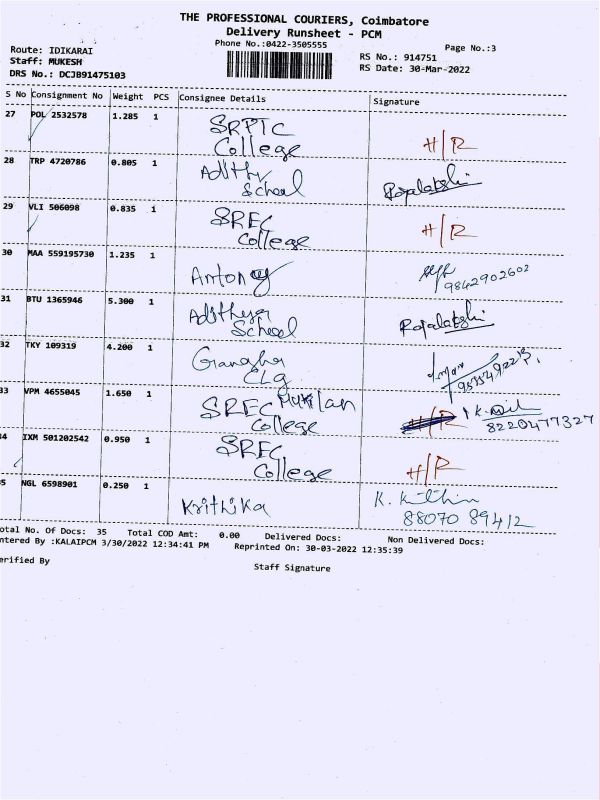 THE PROFESSIONAL COURIERS, Coimbatore
Delivery Runsheet - PCM
Phone No.:0422-3505555
Page No.:3
Route: IDIKARAI
Staff: MUKESH
DRS No.: DCJB91475103
RS No.: 914751
RS Date: 30-Mar-2022
S No Consignment No Weight PCS Consignee Details Signature
27 POL 2532578 1.285 1 SRPTC College H/R
28 TRP 4720786 0.805 1 School Rajalakshi
29 VLI 506098 0.835 1 SREC College H/R
30 MAA 559195730 1.235 1 Antony 9842902602
31 BTU 1365946 5.300 1 Aditheya School Rajalakshi
32 TKY 109319 4.200 1 CLG
33 VPM 4655045 1.650 1 SREC College 8220477327
34 IXM 501202542 0.950 1 SREC College H/R
35 NGL 6598901 0.250 1 Krithika K. 88070 89412
otal No. Of Docs: 35 Total COD Amt: 0.00 Delivered Docs: Non Delivered Docs:
ntered By :KALAIPCM 3/30/2022 12:34:41 PM Reprinted On: 30-03-2022 12:35:39
erified By
Staff Signature